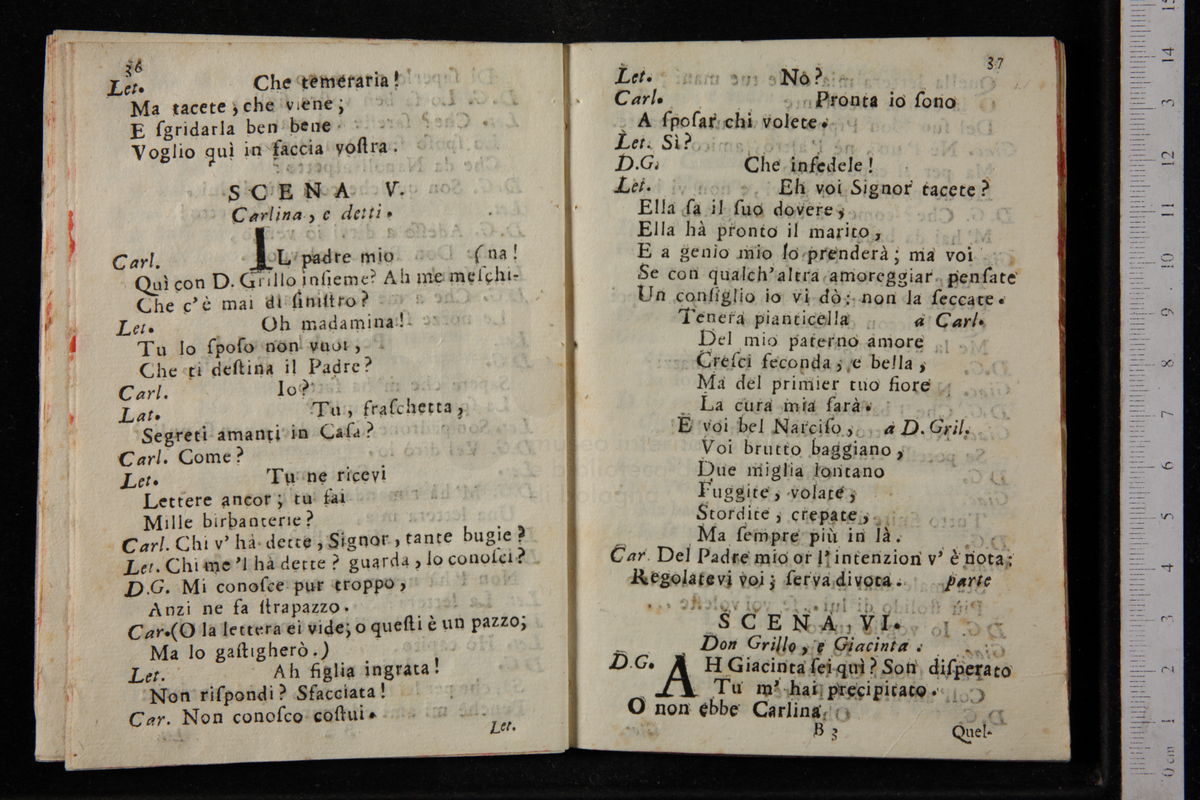 36
Let. Che temeraria!
Ma tacete, che viene;
E ſgridarla ben bene
Voglio quì in faccia voſtra.
SCENA V.
Carlina, e detti.
Carl. IL padre mio (na!
Quì con D. Grillo inſieme? Ah me meſchi-
Che c'è mai di ſiniſtro?
Let. Oh madamina!
Tu lo ſpoſo non vuoi,
Che ti deſtina il Padre?
Carl. Io?
Lat. Tu, fraſchetta,
Segreti amanti in Caſa?
Carl. Come?
Let. Tu ne ricevi
Lettere ancor; tu fai
Mille birbanterie?
Carl. Chi v' hà dette, Signor, tante bugie?
Let. Chi me 'l hà dette? guarda, lo conoſci?
D.G. Mi conoſce pur troppo,
Anzi ne fa ſtrapazzo.
Car. (O la lettera ei vide; o queſti è un pazzo;
Ma lo gaſtigherò.)
Let. Ah figlia ingrata!
Non riſpondi? Sfacciata!
Car. Non conoſco coſtui.
Let.
37
Let. Nò?
Carl. Pronta io ſono
A ſpoſar chi volete.
Let. Sì?
D.G. Che infedele!
Let. Eh voi Signor tacete?
Ella ſa il ſuo dovere,
Ella hà pronto il marito,
E a genio mio lo prenderà; ma voi
Se con qualch'altra amoreggiar penſate
Un conſiglio io vi dò; non la ſeccate.
Tenera pianticella a Carl.
Del mio paterno amore
Creſci feconda, e bella,
Ma del primier tuo fiore
La cura mia ſarà.
E voi bel Narciſo, a D. Gril.
Voi brutto baggiano,
Due miglia lontano
Fuggite, volate,
Stordite, crepate,
Ma ſempre più in là.
Car. Del Padre mio or l' intenzion v' è nota;
Regolatevi voi; ſerva divota. parte
SCENA VI.
Don Grillo, e Giacinta.
D.G. AH Giacinta ſei quì? Son diſperato
Tu m' hai precipitato.
O non ebbe Carlina
B 3
Quel-
15
14
3
12
11
10
9
8
7
6
5
4
3
2
1
0 cm